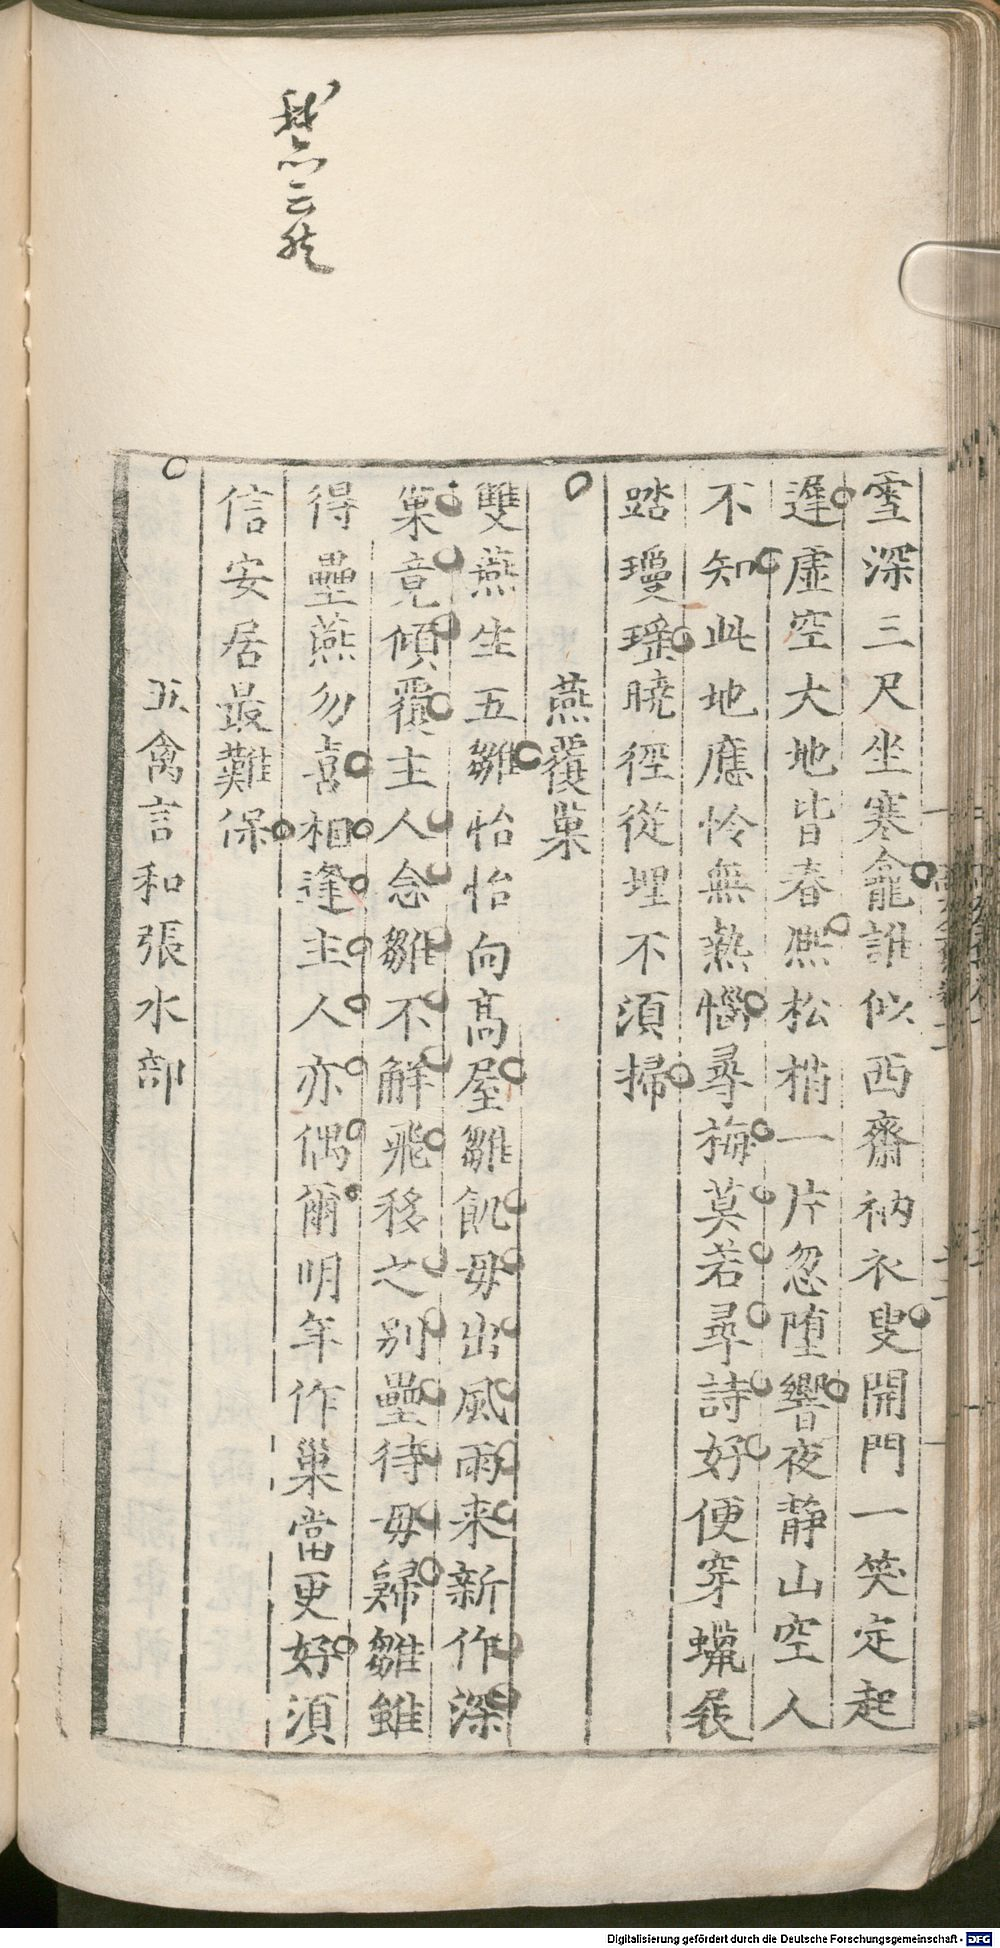 雪深三尺坐寒龕誰似西齋衲衣叟開門一笑定起
遲虛空大地皆春熈松梢一片忽墮響夜静山空人
不知此地應怜無熱惱尋梅莫若尋詩好便穿蠟屐
踏瓊瑶曉徑從埋不須掃
燕覆巢
雙燕生五雛怡怡向髙屋雛飢毋出風雨来新作深
巢竟傾覆主人念雛不解飛移之别壘待毋歸雛雖
得壘燕勿喜相逢主人亦偶爾明年作巢當更好須
信安居最難保
五禽言和張水部
我亦云然
Digitalisierung gefördert durch die Deutsche Forschungsgemeinschaft - DFG